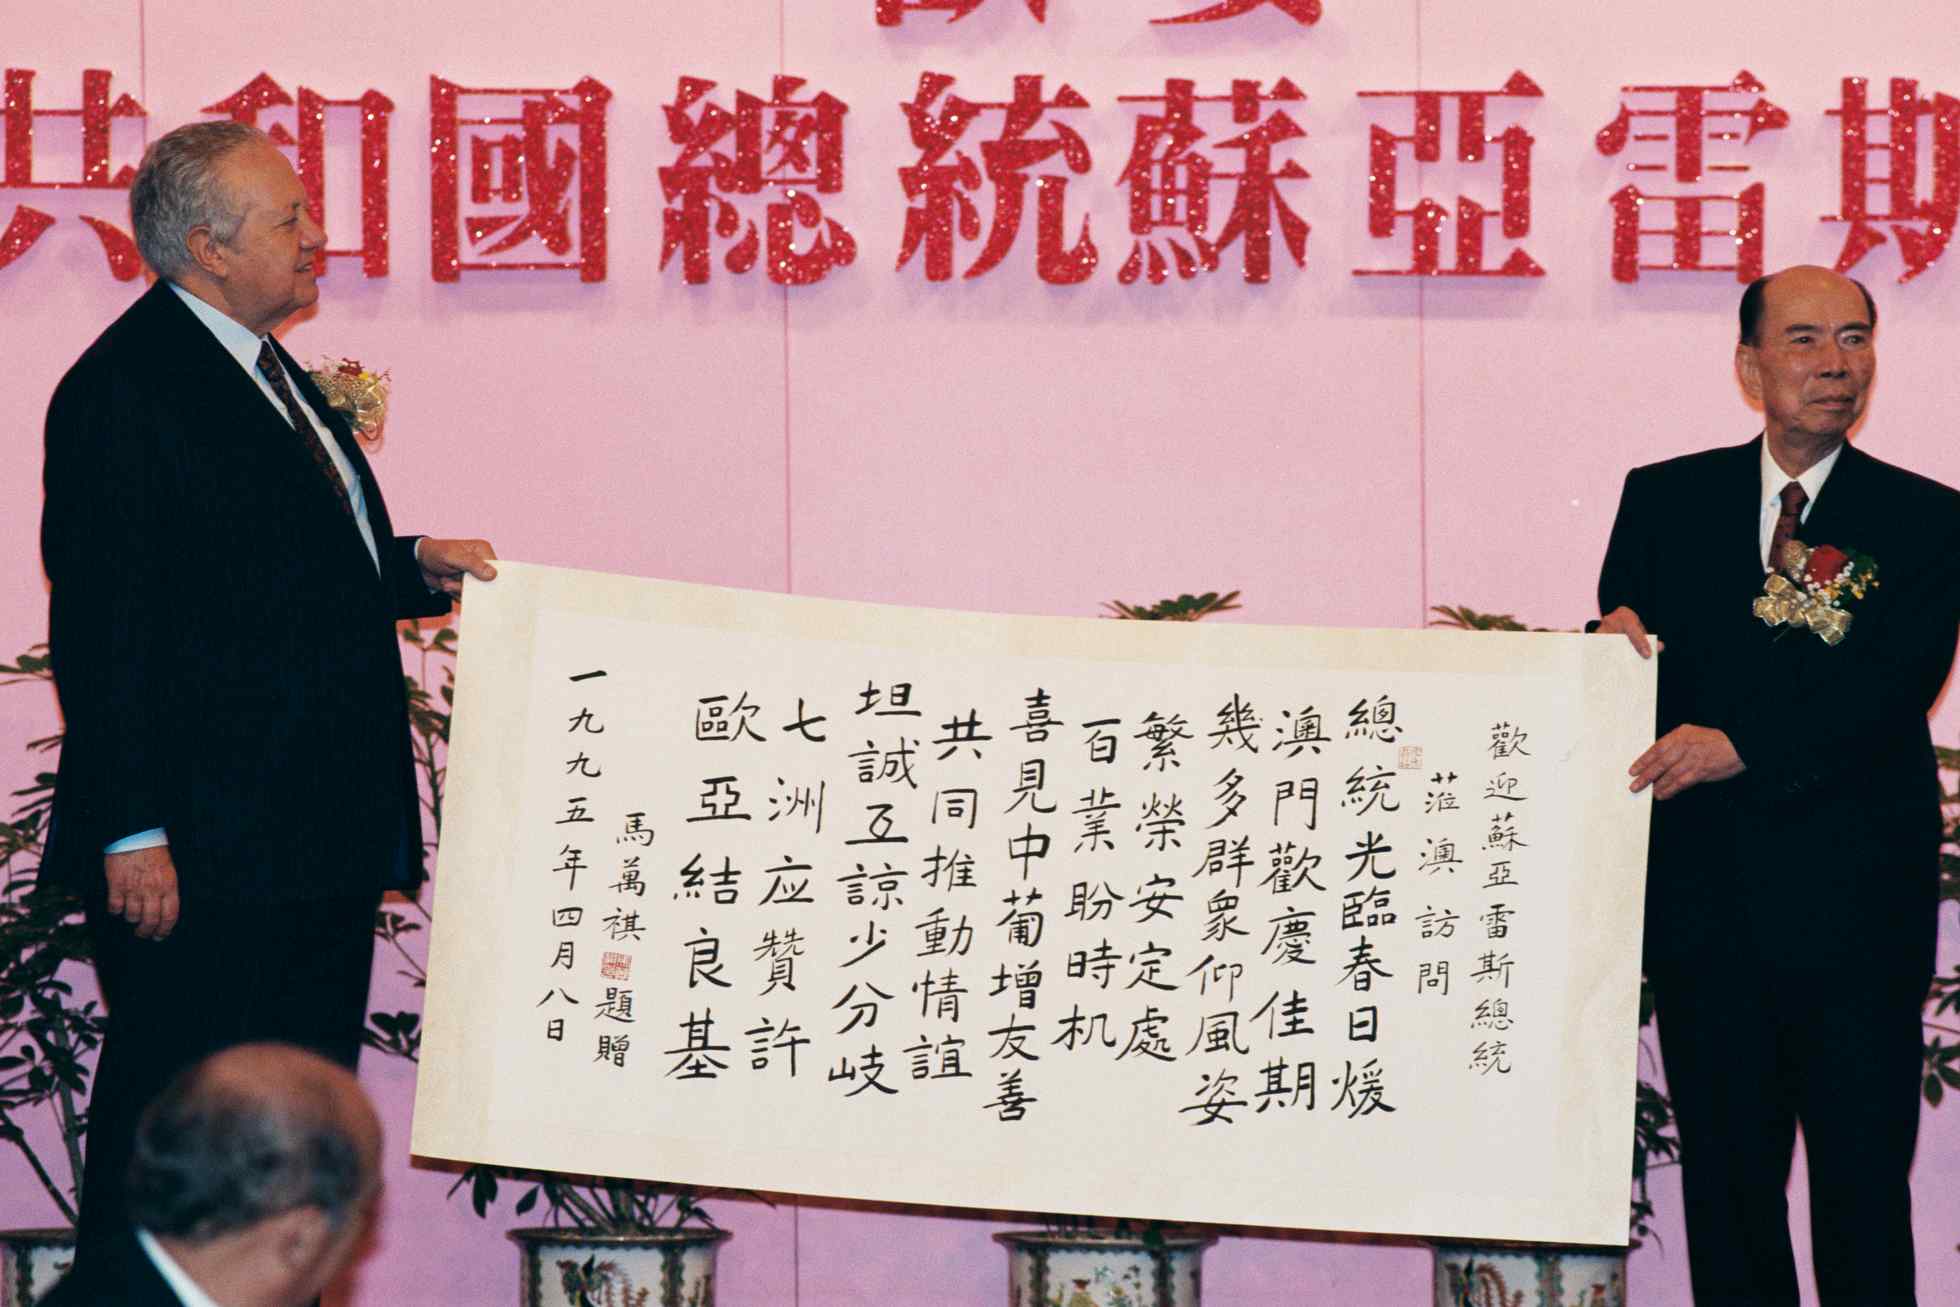 共和國總統蘇亞雷斯
歡迎蘇亞雷斯總統
蒞澳訪問
總統光臨春日煖
澳門歡慶佳期
幾多群衆仰風姿
繁榮安定處
百業盼時机
喜見中葡增友善
共同推動情誼
坦誠互諒少分歧
七洲应贊許
歐亞結良基
馬萬祺題贈
一九九五年四月八日